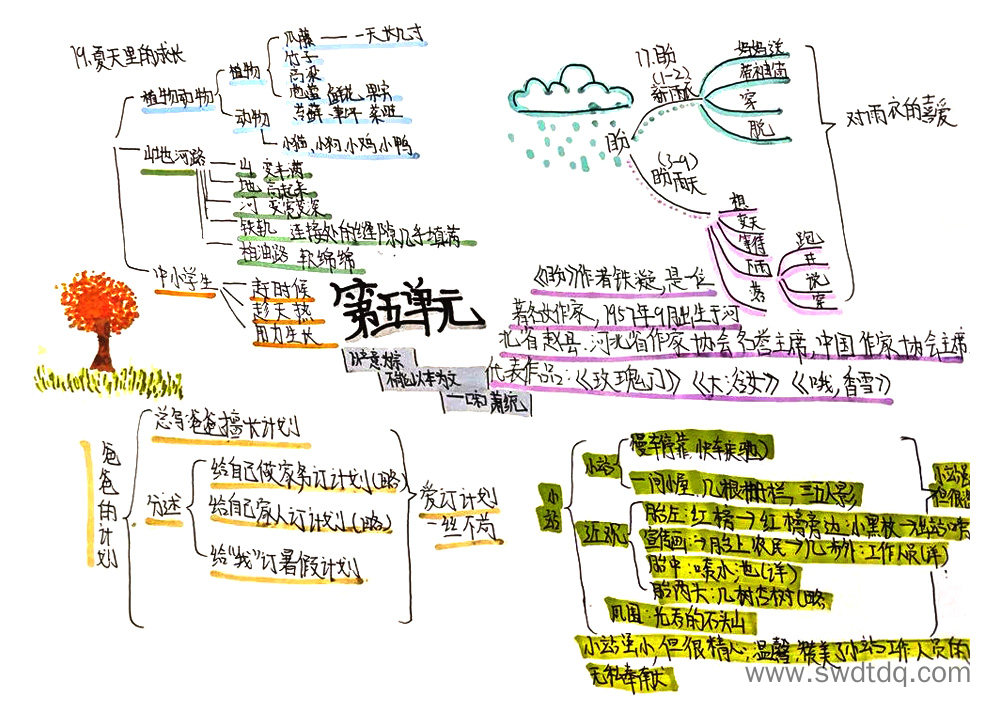 19.夏天里的成长
植物动物
植物
瓜藤 一天长几寸
竹子
高粱
地 鲜花 果实
苔藓 草坪 菜畦
动物
小猫、小狗、小鸡、小鸭
山地河路
山 变丰满
地 高起来
河 变宽变深
铁轨 连接处的缝隙几乎填满
柏油路 软绵绵
中小学生
赶时候
趁天热
用力生长
第五单元
以意为
不能以本为文
一味萧统
17.盼
盼
(1-2)
新雨衣
妈妈送
穿
脱
(3-9)
盼雨天
想
变天
等待
下雨
跑
说
对雨衣的喜爱
《盼》作者铁凝,是一位
著名女作家,1957年9月出生于河
北省赵县.河北省作家协会名誉主席,中国作家协会主席
代表作品:《玫瑰门》《大浴女》《哦,香雪》
爸爸的计划
总写:爸爸擅长计划
分述
给自己做家务订计划(略)
给自己家人订计划(略)
给“我”订暑假计划
爱订计划
一丝不苟
小站
小站
慢车停靠 快车奔驰
一间小屋、几根栅栏,三五人影
近观
胎左:红榜→红榜旁边:小黑板
宣传画→月台上 农民→几步外:工作人员(详)
胎中:喷水池(详)
胎两头:几树杏树(略
周围:光秃的石头山
小站虽小,但很精心,温馨,赞美了小站工作人员的
无私奉献
www.swdtdq.com